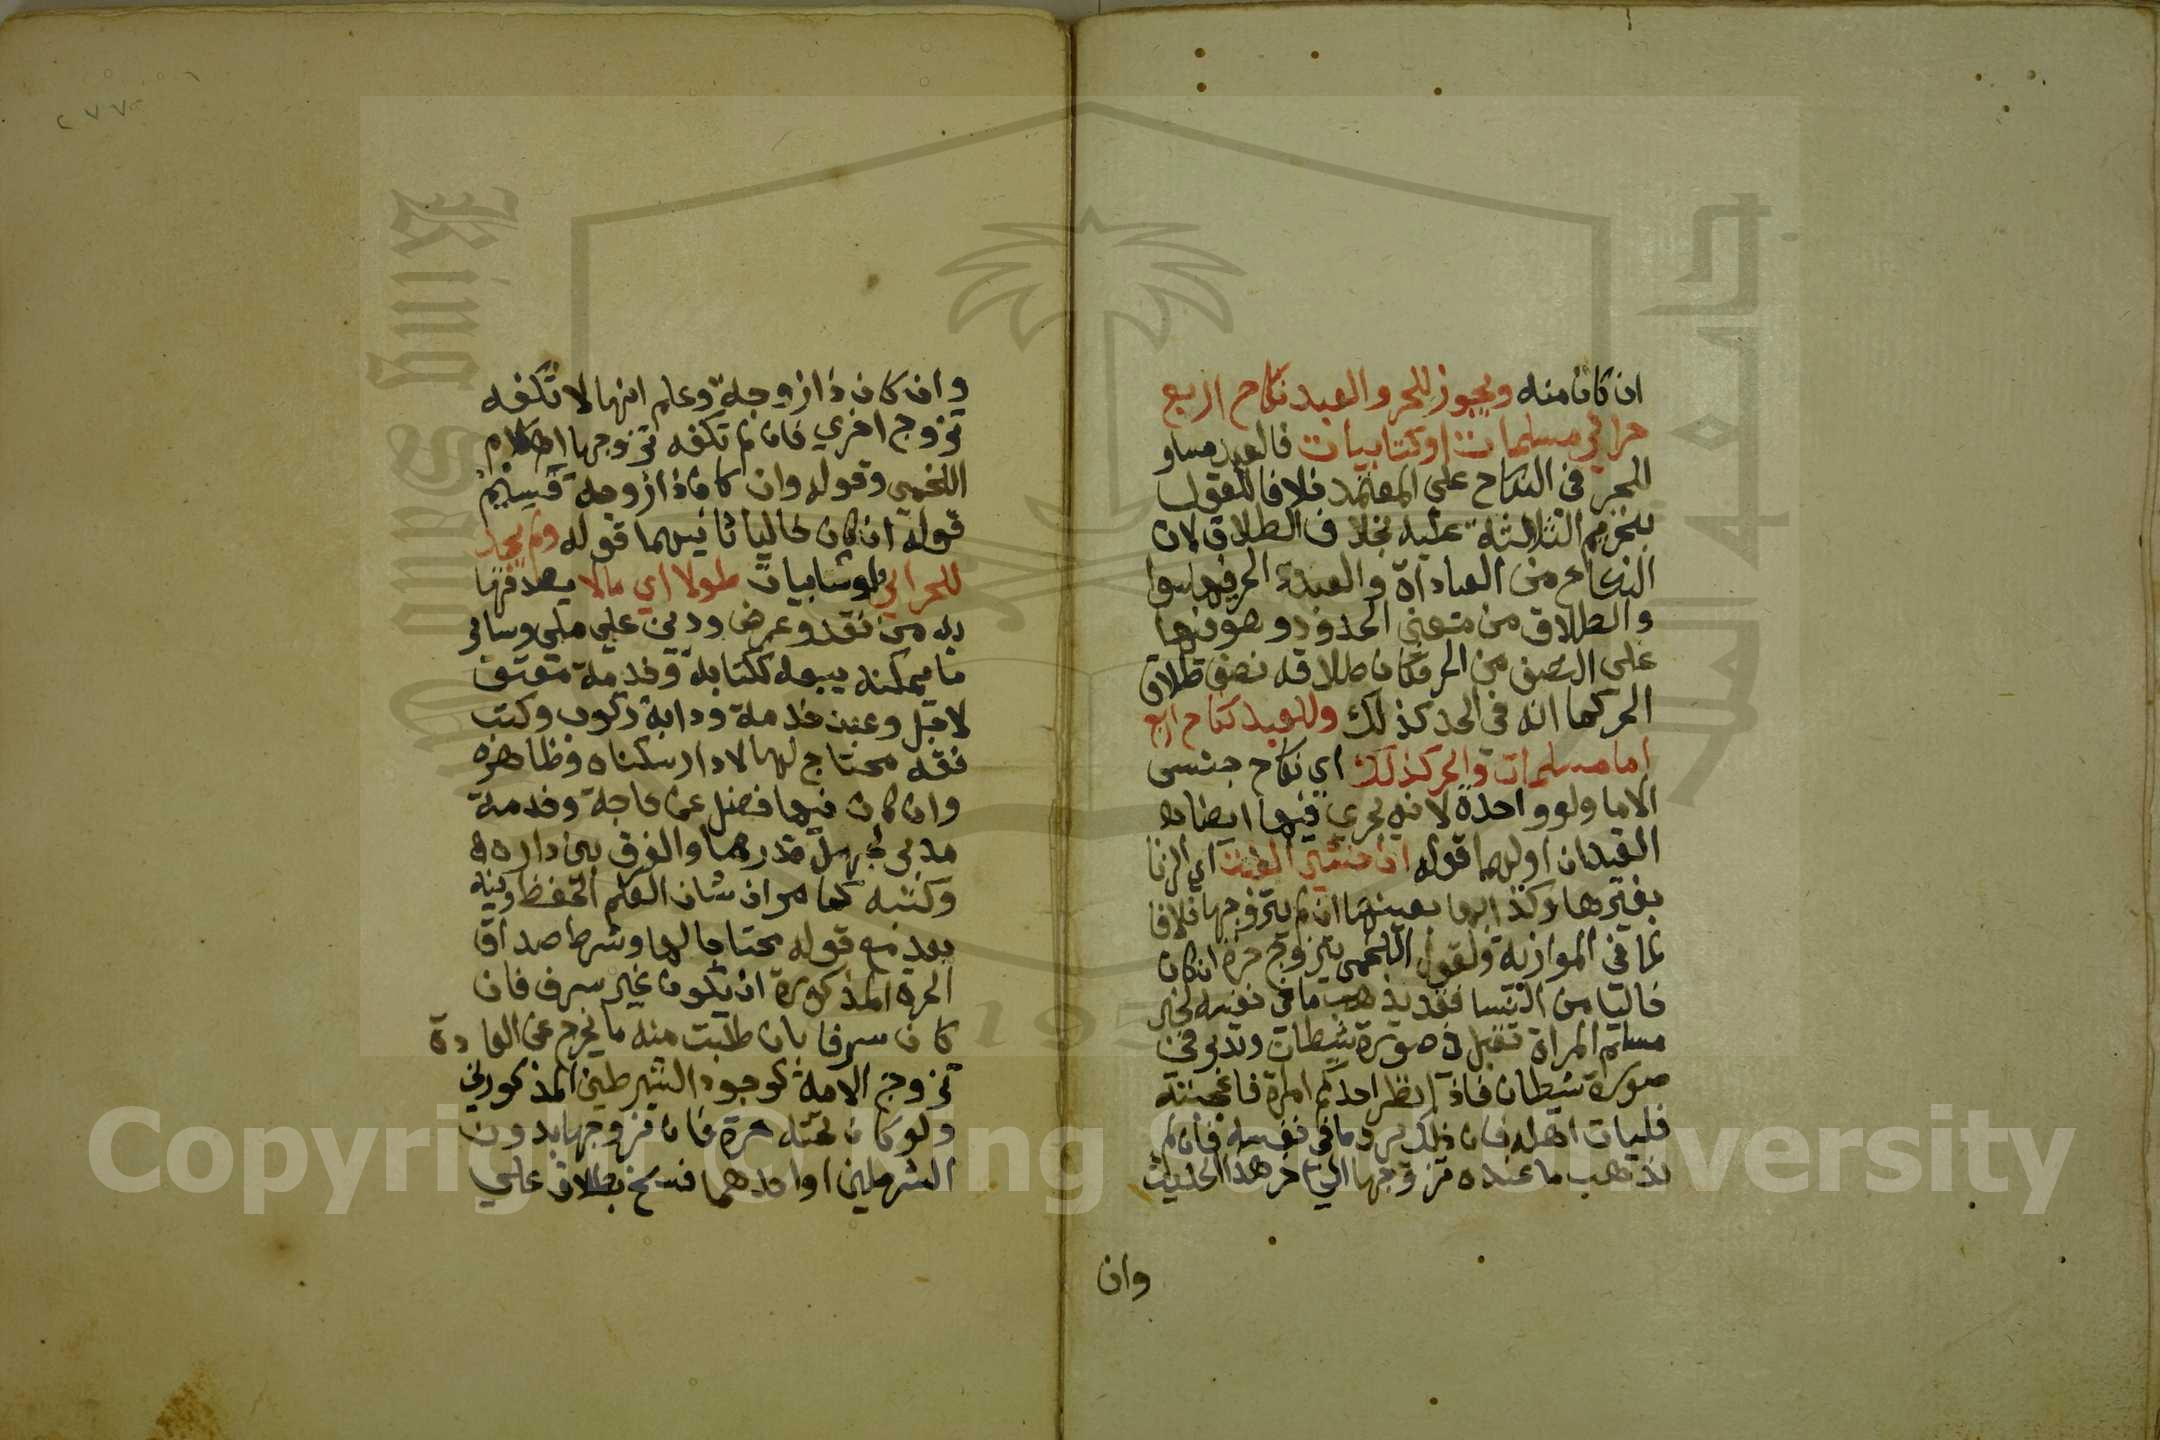 ان كان منه ويجوز للحر والعبد نكاح اربع
حراير مسلمات او كتابيات فالعبد مساو
للحر في النكاح علي المعتمد خلافا للقول
بتحريم الثلاثة عليه بخلاف الطلاق لان
النكاح من العبادات والعبد والحر فيها سوا
والطلاق من معني الحدود وهو فيها
علي النصف من الحر فكان طلاقه نصف طلاق
الحر كما انه في الحد كذلك وللعبد نكاح اربع
اما مسلمات وللحر كذلك اي نكاح جنس
الاما ولو واحدة لانه يجري فيها ايضا
القيدان اولهما قوله ان خشي العنت اي الزنا
بغيرها وكذا بها بعينها ان لم يتزوجها خلافا
لما في الموازية ولقول اللخمي يتزوج حرة ان كان
خاليا من النسا فقد يذهب ما في نفسه لخبر
مسلم المراة تقبل في صورة شيطان وتدبر في
صورة شيطان فاذا نظر احدكم امراة فاعجبته
فليات اهله فان ذلك يرد ما في نفسه فان لم
يذهب ما عنده تزوجها الي اخر هذا الحديث
وان
٢٧٧
وان كان ذا زوجة وعلم انها لا تكفه
تزوج اخري فان لم تكفه تزوجها اهكلام
اللخمي وقوله وان كان ذا زوجة قسيم
قوله ان كان خاليا ثانيهما قوله ولم يجد
للحراير طولا اي مالا يصدقها
به من نقد وعرض ودين علي ملي وساير
ما يمكنه بيعه ككتابة وخدمة معتق
لاجل وعبد خدمة ودابة ركوب وكتب
فقه محتاج لها لا دار سكناه وظاهره
وان كان فيها فضل عن حاجة وخدمة
مدبر لجهل قدرها والفرق بين داره
وكتبه كما مر ان شان العلم الحفظ وفيه
بعد مع قوله محتاجا لها وشرط صداق
الحرة المذكورة ان يكون غير سرف فان
كان سرفا بان طلبت منه ما يخرج عن العادة
تزوج الامة لوجود الشرطين المذكورين
ولو كان تحته حرة فان تزوجها بدون
الشرطين او احدهما فسخ بطلاق علي
Copyright © King Saud University
1957